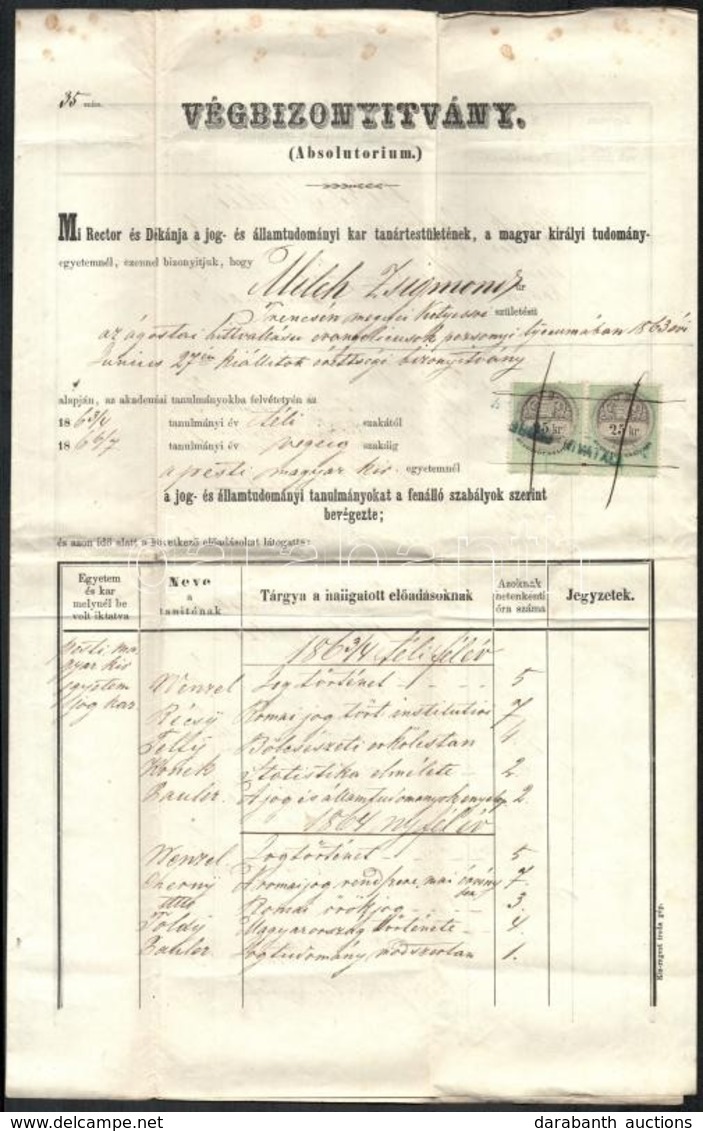 35 szám.
VÉGBIZONYITVÁNY.
(Absolutorium.)
Mi Rector és Dékánja a jog- és államtudományi kar tanártestületének, a magyar királyi tudomány-
egyetemnél, ezennel bizonyitjuk, hogy
Milch Zsigmond úr
Trencsén megyei születésü
az ágostai hitvallásu evangelicusok pozsonyi lyceumában 1863 évi
Junius 27én kiállitott érettségi bizonyitvány
alapján, az akademiai tanulmányokba felvétetvén az
1863/4 tanulmányi év téli szakától
1866/7 tanulmányi év végéig szakáig
a pesti magyar kir. egyetemnél
25 kr
25 kr
HIVATAL
a jog- és államtudományi tanulmányokat a fenálló szabályok szerint
bevégezte;
és azon idő alatt a következő előadásokat látogatta:
Egyetem és kar melynél be volt iktatva
Neve a tanitónak
Tárgya a hallgatott előadásoknak
Azoknak hetenkénti óra száma
Jegyzetek.
1863/4 téli félév
pesti ma
gyar kir
egyetem
jog kar
Wenzel Jogtörténet 5
Récsy Római jog tört. institutiói 7
Bölcsészeti erkölcstan 4
Konek Statistika elmélete 2
Pauler A jog és államtudományok 2.
1864 ny félév
Wenzel Jogtörténet 5
A római jog rendszere mai érvény
ben 7.
Római örökjog 3.
Toldy Magyarország története 4.
Pauler Jogtudomány módszertan 1.
darabanth
darabanth auctions